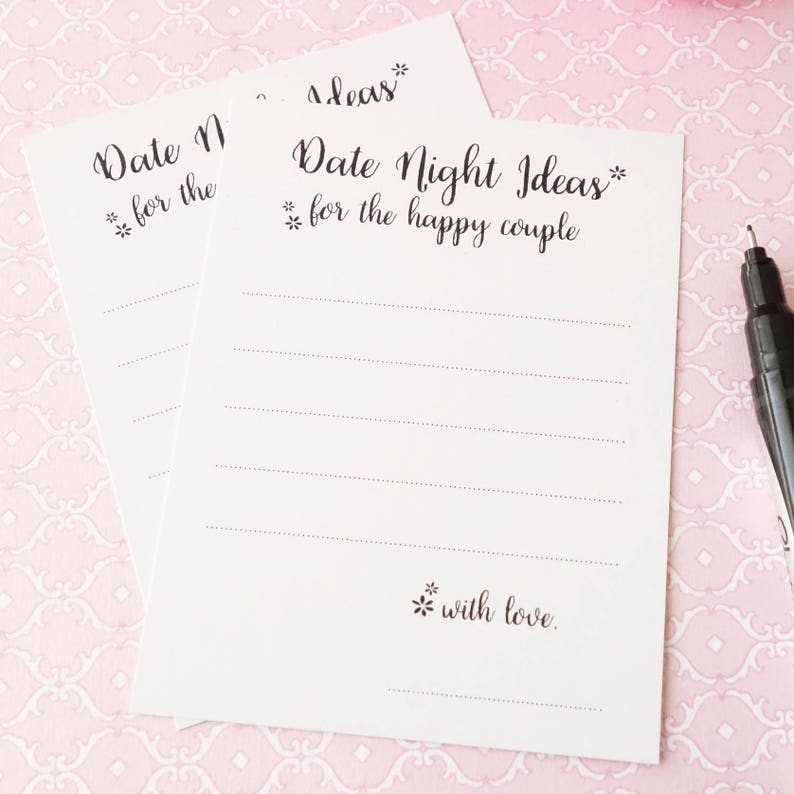 Date Night Ideas
for the happy couple
with love.
Date N Ideas
for the